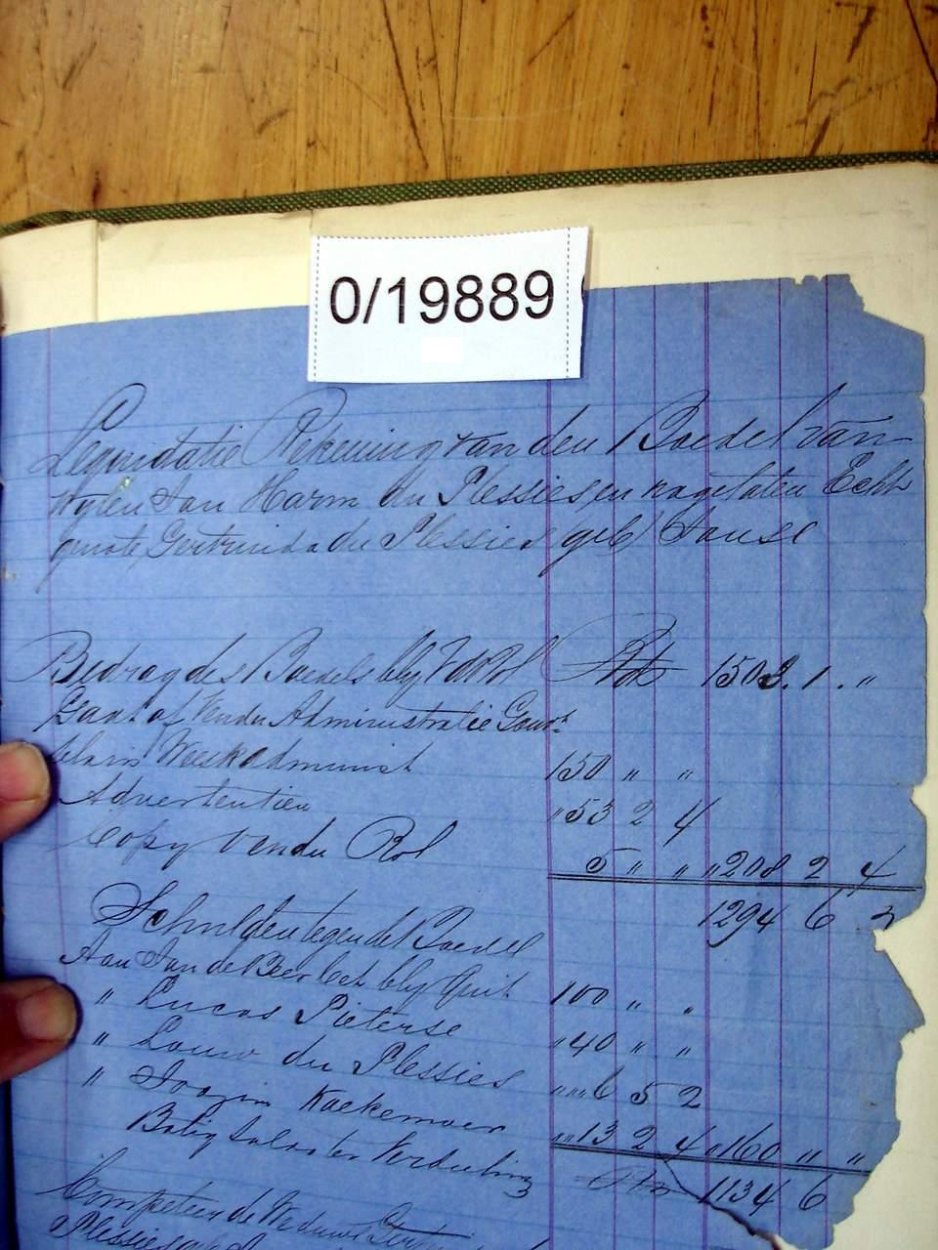 0/19889
Lequidatie Rekening van den Boedel van
Wylen Jan Harm du Plessies en nagelaten Echt
genote Gertruida du Plessies (geb) Janse
Bedrag des Boedels bly V d Rol Rds 1503. 1. "
Vendu Administratie Gouvt
Weeskadminist 150 " "
Advertentien " 53 2 4
Copy Vendu Rol 5 " " " 208 2 4
1294 6
Schulden tegen de Boedel
Aan Jan de Beer bly Quit 100 " "
" Lucas Pieterse " 40 " "
" Louw du Plessies " " " 6 5 2
" Joozim Koekemoer " " 13 2 4 " 160 " "
Batig Saldo ter Verdeeling Rds 1134 6
Competeer de Weduwe
Plessies geb